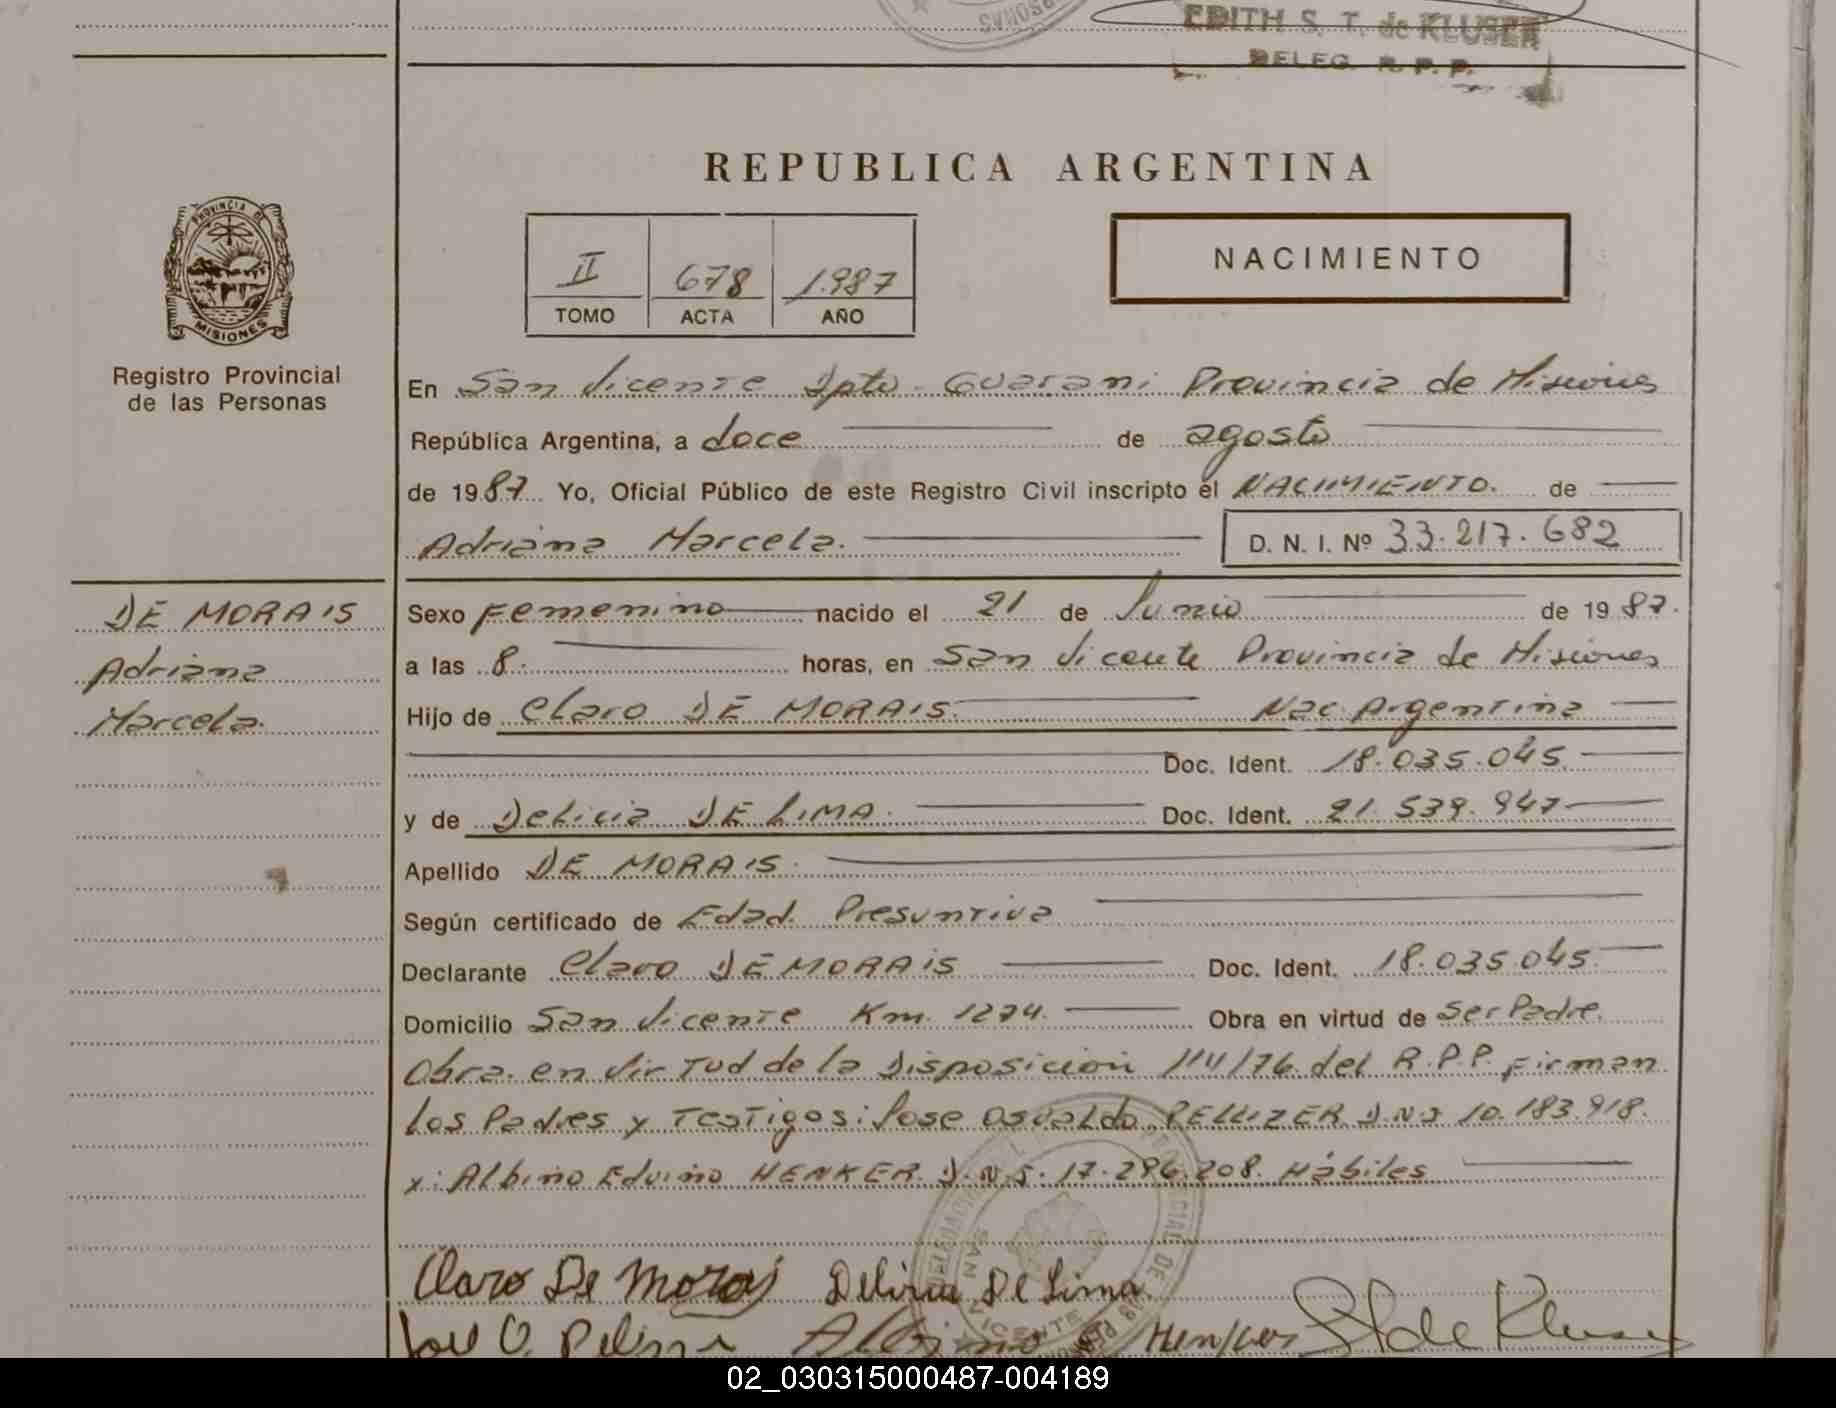 EDITH S. T. de KLUSER
DELEG. R. P. P.
REPUBLICA ARGENTINA
NACIMIENTO
II 678 1.987
TOMO ACTA AÑO
PROVINCIA DE
MISIONES
Registro Provincial
de las Personas
En San Vicente Dpto. Guarani Provincia de Misiones
República Argentina, a doce de agosto
de 1987 Yo, Oficial Público de este Registro Civil inscripto el NACIMIENTO. de
Adriana Marcela. D. N. I. Nº 33.217.682
DE MORAIS
Adriana
Marcela.
Sexo Femenino nacido el 21 de Junio de 1987.
a las 8. horas, en San Vicente Provincia de Misiones
Hijo de Claro DE MORAIS. Nac Argentina
Doc. Ident. 18.035.045.
y de Delicia DE LIMA. Doc. Ident. 21.539.947
Apellido DE MORAIS.
Según certificado de Edad. Presuntiva
Declarante Claro DE MORAIS Doc. Ident. 18.035.045.
Domicilio San Vicente Km. 1274. Obra en virtud de Ser Padre.
Obra en Virtud de la Disposicion 114/76 del R.P.P. Firman
los Padres y Testigos: Jose Osvaldo PELLIZER D.N.I 10.183.918.
y: Albino Edvino HENKER D.N.I. 17.296.208. Hábiles
SAN VICENTE
Claro De Morais Delicia De Lima.
Jose O. Albino Henker de Kluser
02_030315000487-004189